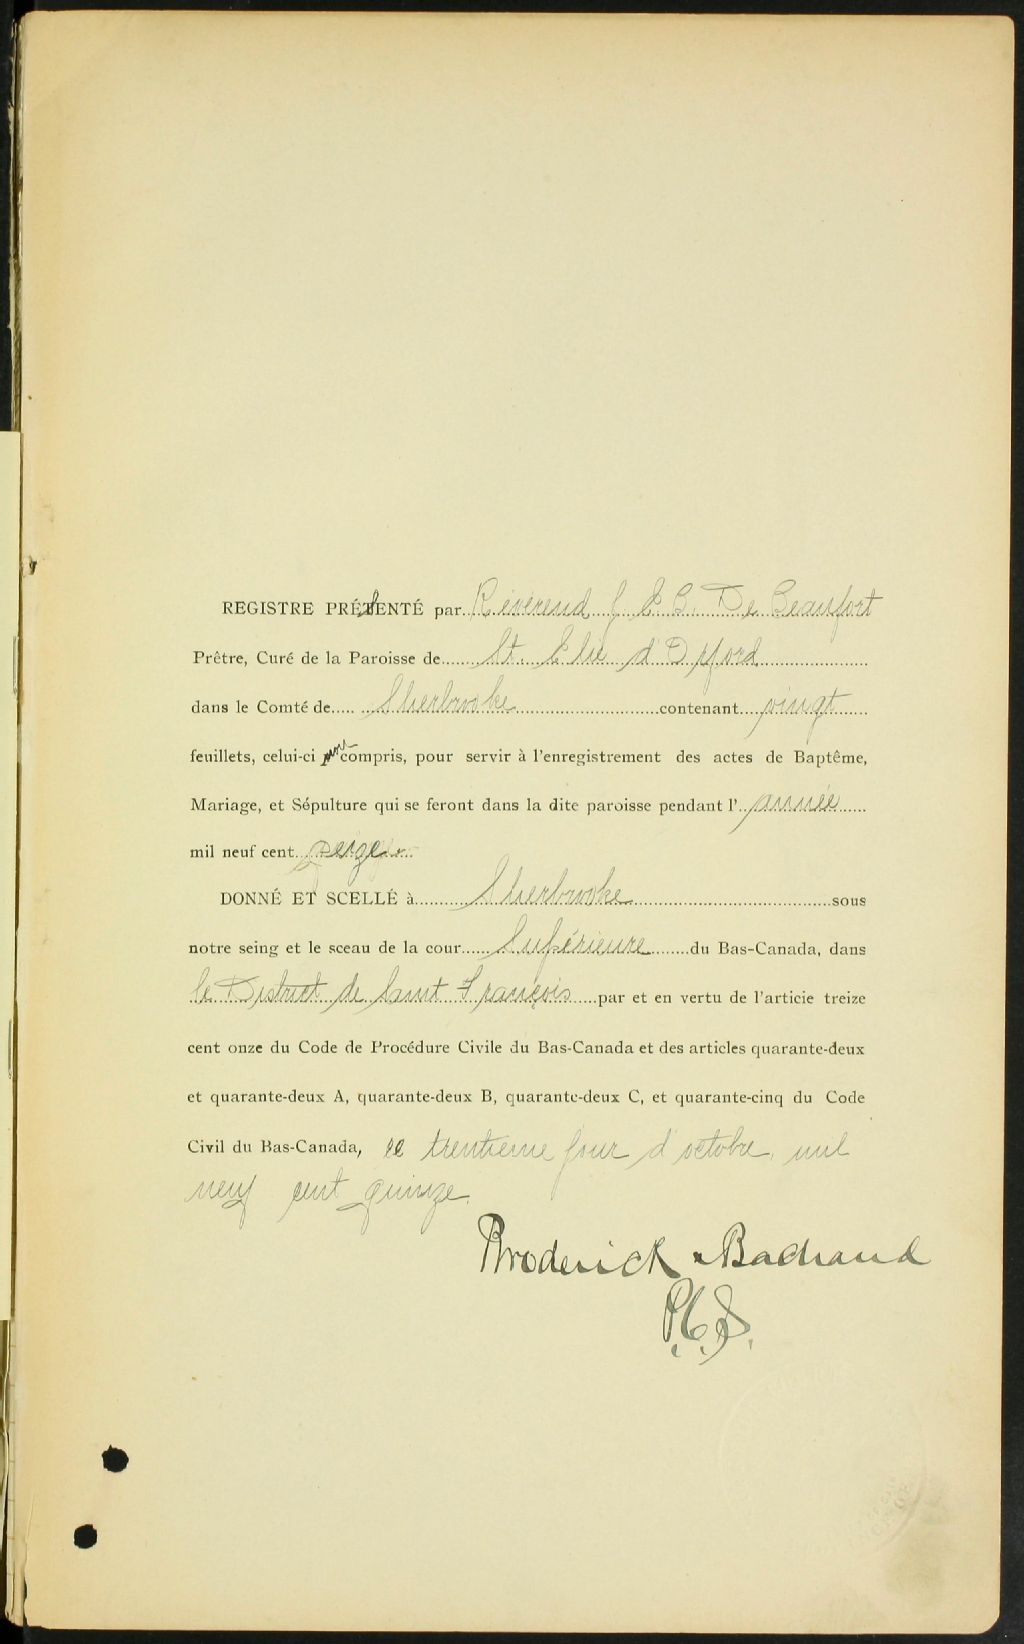 REGISTRE PRÉSENTÉ par Révérend J E C. De Beaufort
Prêtre, Curé de la Paroisse de St. Elie d'Orford
dans le Comté de Sherbrooke contenant vingt
feuillets, celui-ci non compris, pour servir à l'enregistrement des actes de Baptême,
Mariage, et Sépulture qui se feront dans la dite paroisse pendant l'année
mil neuf cent seize
DONNÉ ET SCELLÉ à Sherbrooke sous
notre seing et le sceau de la cour Supérieure du Bas-Canada, dans
le District de Saint François par et en vertu de l'articie treize
cent onze du Code de Procédure Civile du Bas-Canada et des articles quarante-deux
et quarante-deux A, quarante-deux B, quarante-deux C, et quarante-cinq du Code
Civil du Bas-Canada, ce trentième jour d'octobre, mil
neuf cent quinze.
Broderick & Bachand
P.C.S.